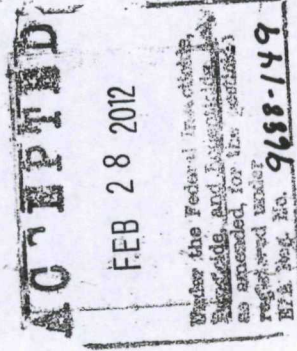 ACCEPTED
FEB 28 2012
Under the Federal Insecticide,
Fungicide, and Rodenticide Act
as amended, for the pesticide
registered under
EPA Reg. No. 9688-149